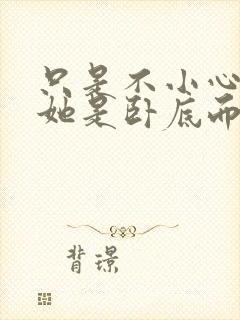 只是不小心
她是卧底而
背璟